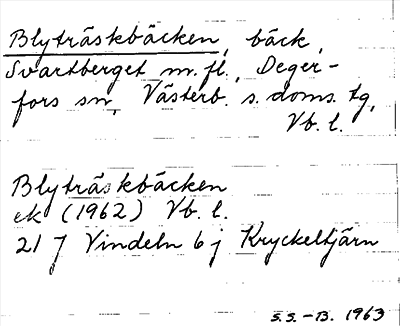 Blyträskbäcken, bäck,
Svartberget m.fl., Deger-
fors sn, Västerb. s. doms. tg,
Vb. l.
Blyträskbäcken
ek (1962) Vb. l.
21 J Vindeln 6 j Kryckeltjärn
S.S.-B. 1963